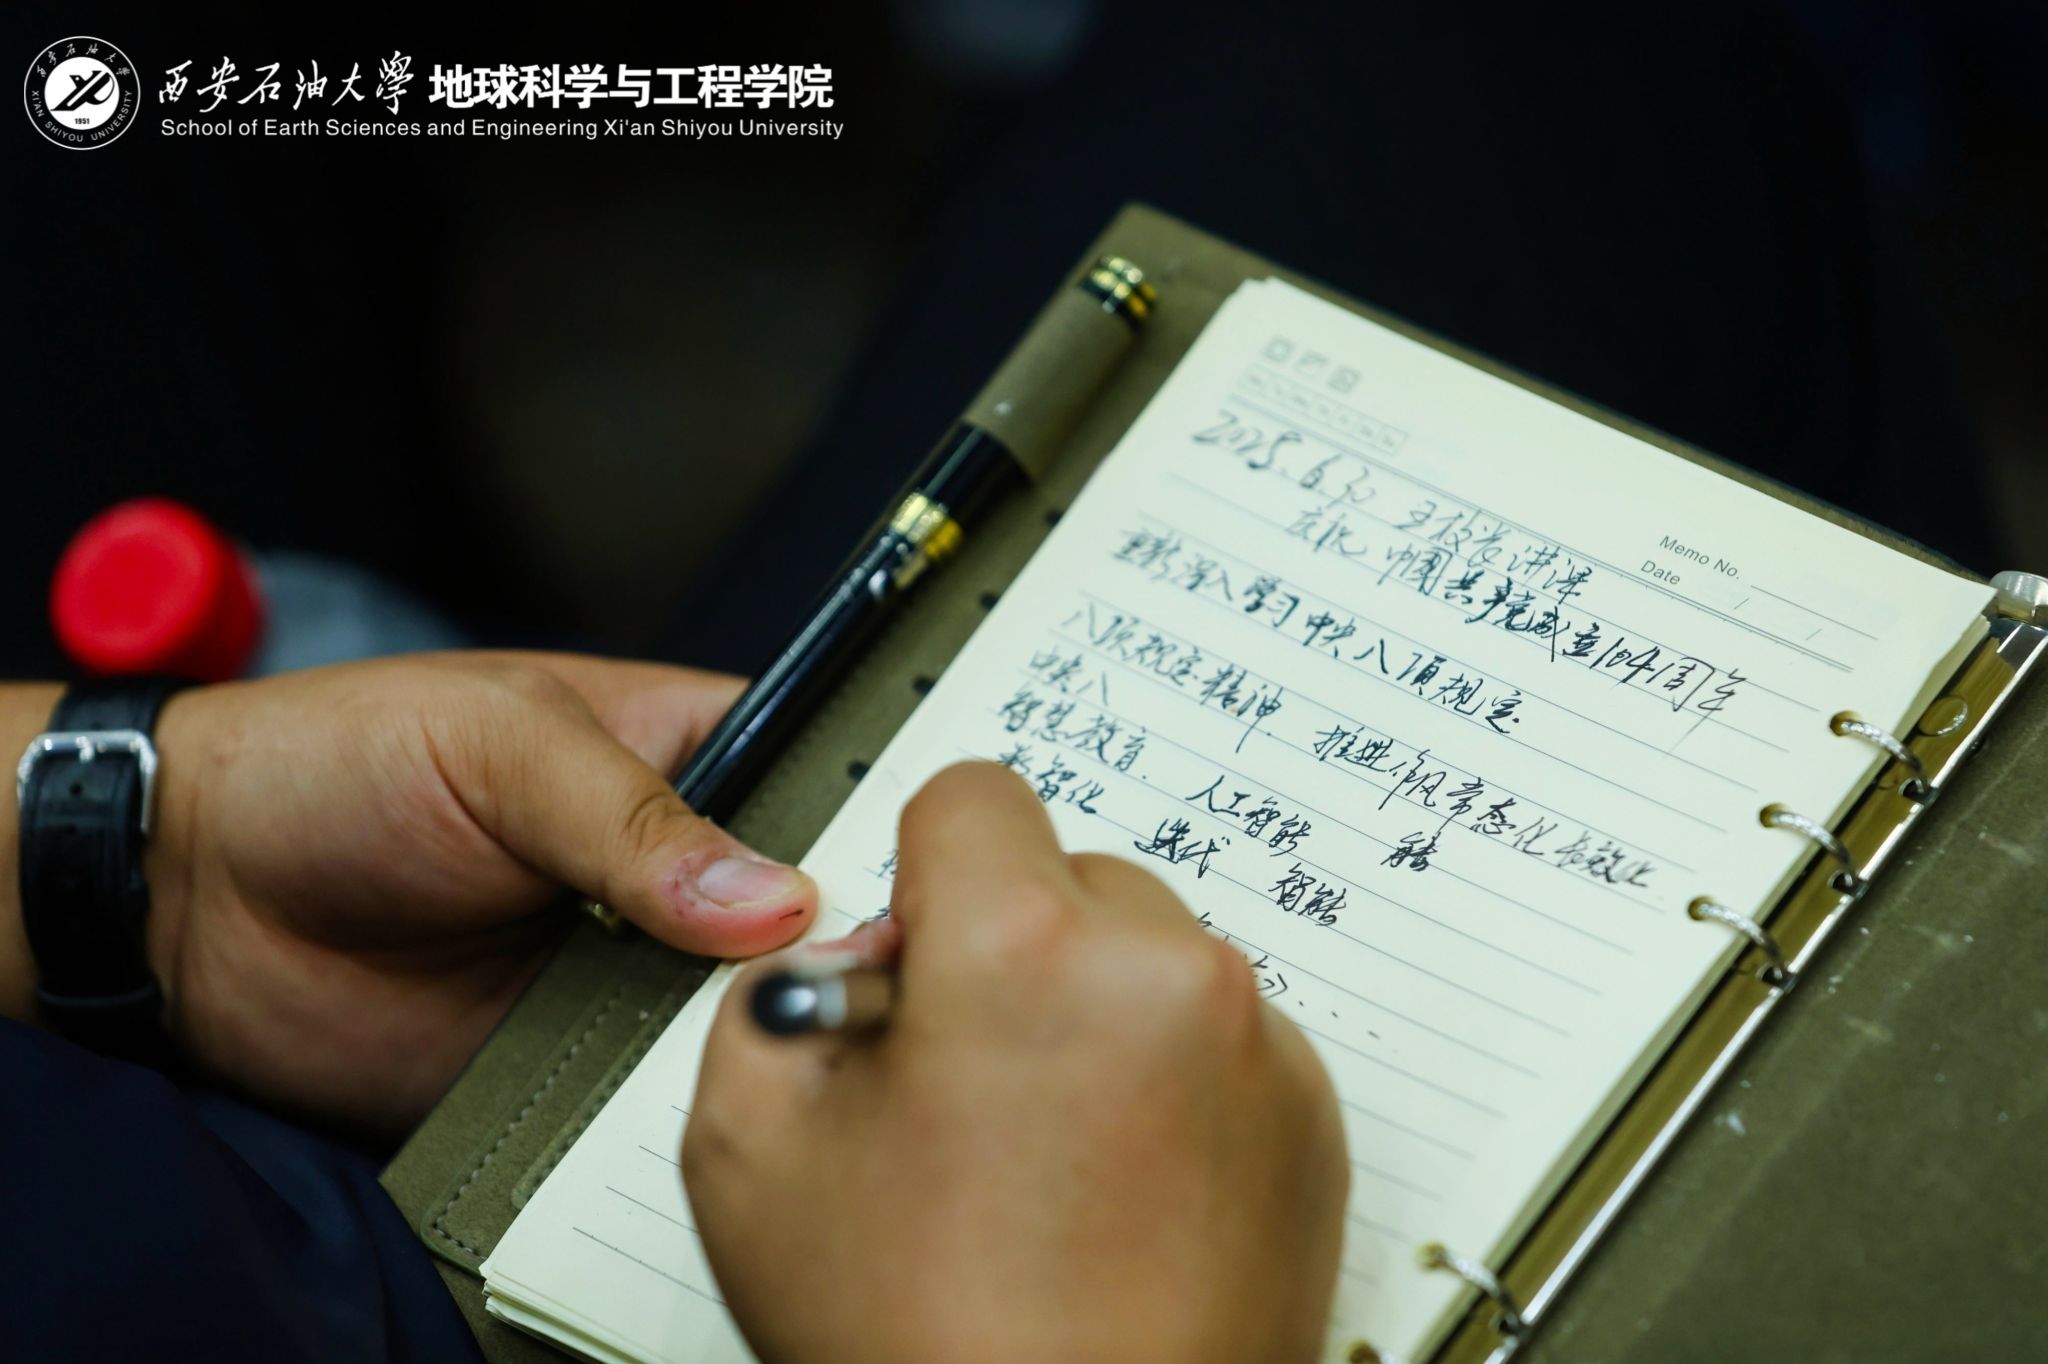 西安石油大学 地球科学与工程学院
School of Earth Sciences and Engineering Xi'an Shiyou University
西安石油大学
XI'AN SHIYOU UNIVERSITY
1951
Memo No.
Date
2025.6.30 王校长讲课
庆祝 中国共产党成立104周年
深入学习中央八项规定
八项规定精神. 推进作风常态化长效化
中央八
智慧教育. 人工智能 能
数智化 迭代 智能